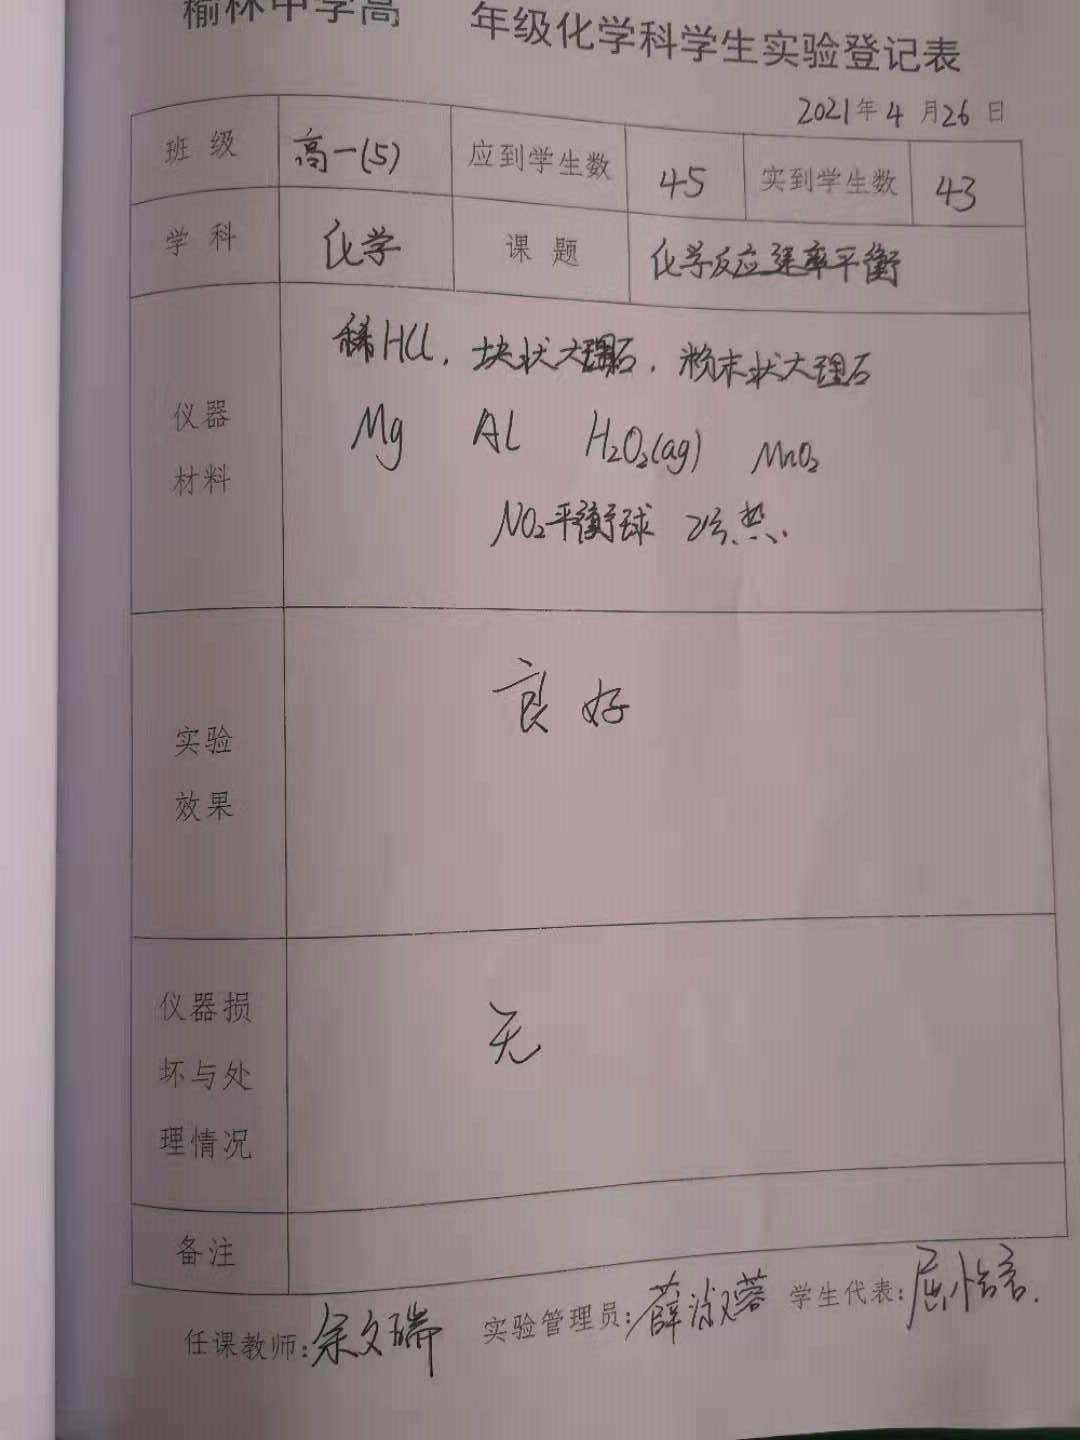 榆林中学高 年级化学科学生实验登记表
2021年4月26日
班级 高一(5) 应到学生数 45 实到学生数 43
学科 化学 课题 化学反应速率平衡
仪器材料
稀HCl，块状大理石，粉末状大理石
Mg Al H₂O₂(aq) MnO₂
NO₂平衡球 冷、热
实验效果
良好
仪器损坏与处理情况
无
备注
任课教师：余文瑞 实验管理员：薛淑蓉 学生代表：屈怡言